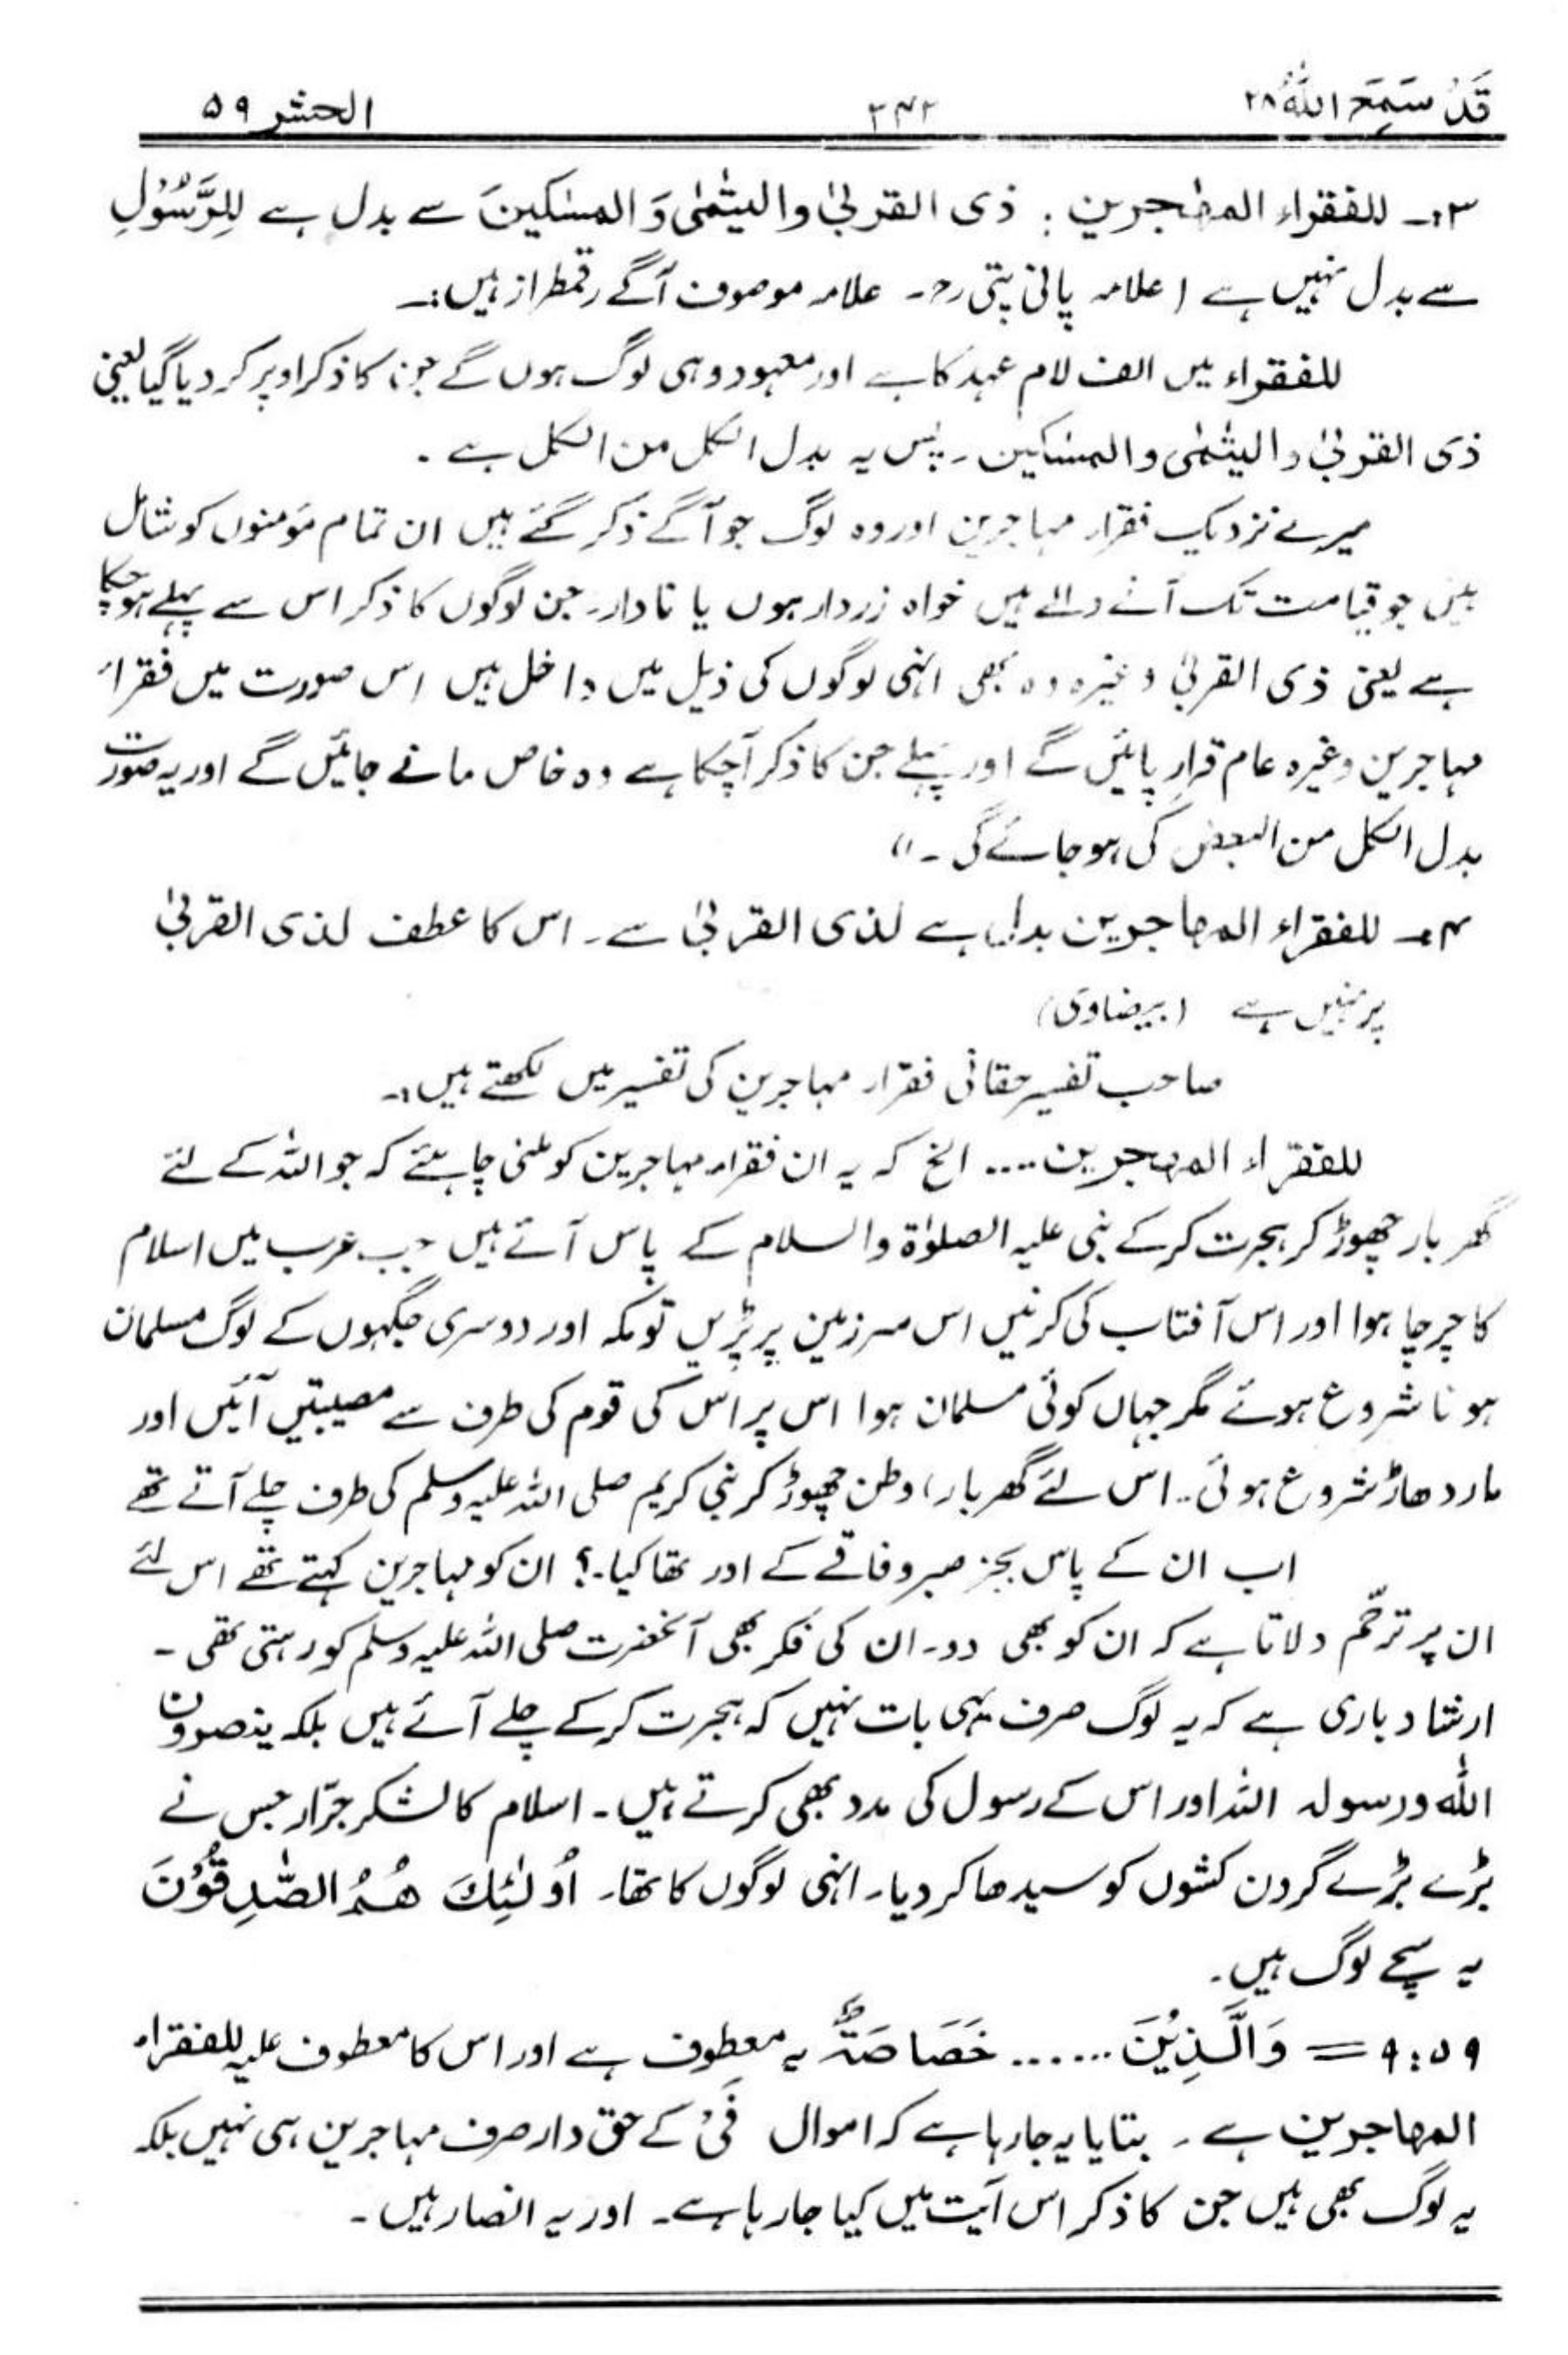 قَدْ سَمِعَ اللّٰهُ ۲۸ ۳۴۲ الحشر ۵۹
۳۔ للفقراء المھٰجرین : ذی القربیٰ والیتٰمٰی وَ المسٰکینَ سے بدل ہے لِلرَّسُوْلِ
سے بدل نہیں ہے (علامہ پانی پتی رح۔ علامہ موصوف آگے رقمطراز ہیں:۔
للفقراء میں الف لام عہد کا ہے اور معہود وہی لوگ ہوں گے جن کا ذکر اوپر کر دیا گیا یعنی
ذی القربیٰ والیتٰمٰی والمسٰکین۔ پس یہ بدل الکل من الکل ہے۔
میرے نزدیک فقراء مہاجرین اور وہ لوگ جو آگے ذکر کئے گئے ہیں ان تمام مؤمنوں کو شامل
ہیں جو قیامت تک آنے والے ہیں خواہ زردار ہوں یا نادار۔ جن لوگوں کا ذکر اس سے پہلے ہو چکا
ہے یعنی ذی القربیٰ وغیرہ وہ بھی انہی لوگوں کی ذیل میں داخل ہیں اس صورت میں فقراء
مہاجرین وغیرہ عام قرار پائیں گے اور پہلے جن کا ذکر آچکا ہے وہ خاص مانے جائیں گے اور یہ صورت
بدل الکل من البعض کی ہو جائے گی۔"
۴۔ للفقراء المھاجرین بدل ہے لذی القربیٰ سے۔ اس کا عطف لذی القربیٰ
پر نہیں ہے (بیضاوی)
صاحب تفسیر حقانی فقراء مہاجرین کی تفسیر میں لکھتے ہیں:۔
للفقراء المھجرین.... الخ کہ یہ ان فقراء مہاجرین کو ملنی چاہئے کہ جو اللہ کے لئے
گھر بار چھوڑ کر ہجرت کرکے نبی علیہ الصلوٰۃ والسلام کے پاس آتے ہیں جب عرب میں اسلام
کا چرچا ہوا اور اس آفتاب کی کرنیں اس سرزمین پر پڑیں تو مکہ اور دوسری جگہوں کے لوگ مسلمان
ہونا شروع ہوئے مگر جہاں کوئی مسلمان ہوا اس پر اس کی قوم کی طرف سے مصیبتیں آئیں اور
مار دھاڑ شروع ہوئی۔ اس لئے گھر بار، وطن چھوڑ کر نبی کریم صلی اللہ علیہ وسلم کی طرف چلے آتے تھے
اب ان کے پاس بجز صبر و فاقے کے اور تھا کیا۔؟ ان کو مہاجرین کہتے تھے اس لئے
ان پر ترحّم دلاتا ہے کہ ان کو بھی دو۔ ان کی فکر بھی آنحضرت صلی اللہ علیہ وسلم کو رہتی تھی۔
ارشاد باری ہے کہ یہ لوگ صرف یہی بات نہیں کہ ہجرت کرکے چلے آئے ہیں بلکہ ینصرون
اللّٰہ ورسولہ اللہ اور اس کے رسول کی مدد بھی کرتے ہیں۔ اسلام کا لشکر جرّار جس نے
بڑے بڑے گردن کشوں کو سیدھا کر دیا۔ انہی لوگوں کا تھا۔ اُولٰٓئِكَ هُمُ الصّٰدِقُوْنَ
یہ سچے لوگ ہیں۔
۵۹:۹ = وَالَّذِیْنَ ...... خَصَاصَۃٌ یہ معطوف ہے اور اس کا معطوف علیہ للفقراء
المھاجرین ہے۔ بتایا یہ جا رہا ہے کہ اموال فَیْ کے حق دار صرف مہاجرین ہی نہیں بلکہ
یہ لوگ بھی ہیں جن کا ذکر اس آیت میں کیا جا رہا ہے۔ اور یہ انصار ہیں۔